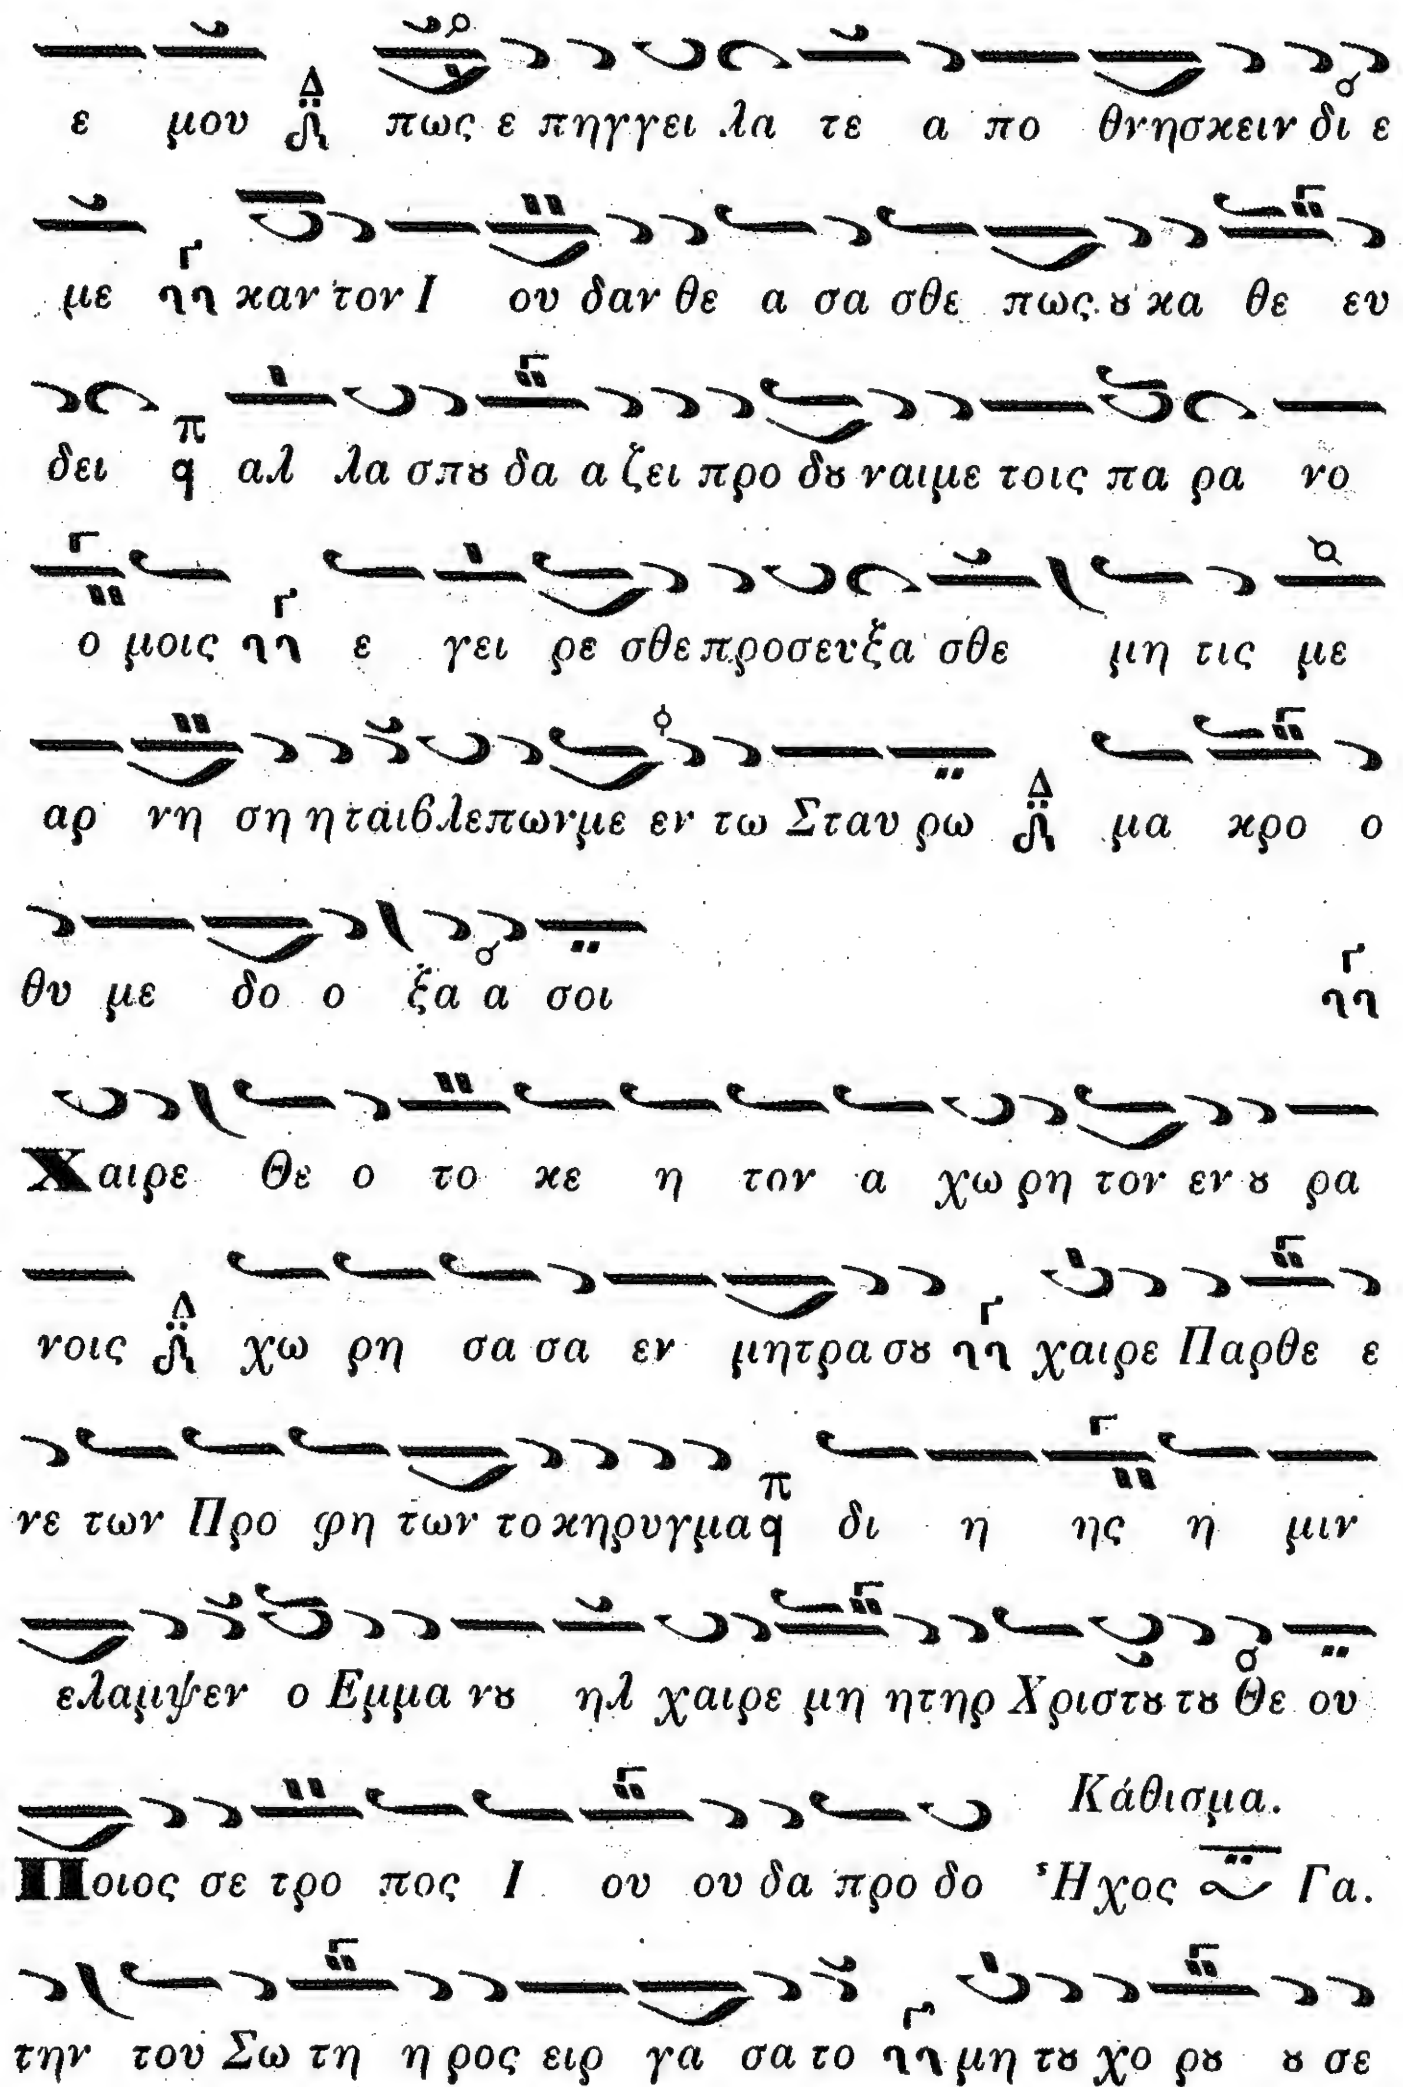 ε μου Δ πως ε πηγγει λα τε α πο θνησκειν δι ε
με Γ καν τον Ι ου δαν θε α σα σθε πως ȣ κα θε ευ
δει π q αλ λα σπȣ δα α ζει προ δȣ ναι με τοις πα ρα νο
ο μοις Γ ε γει ρε σθε προσευξα σθε μη τις με
αρ νη ση η ται βλεπων με εν τω Σταυ ρω Δ μα κρο ο
θυ με δο ο ξα α σοι Γ
Χαιρε Θε ο το κε η τον α χω ρη τον εν ȣ ρα
νοις Δ χω ρη σα σα εν μητρα σȣ Γ χαιρε Παρθε ε
νε των Προ φη των το κηρυγμα π q δι η ης η μιν
ελαμψεν ο Εμμα νȣ ηλ χαιρε μη ητηρ Χριστȣ τȣ Θε ου
Κάθισμα.
Ποιος σε τρο πος Ι ου ου δα προ δο Ἦχος Γα.
την του Σω τη η ρος ειρ γα σα το Γ μη τȣ χο ρȣ ȣ σε